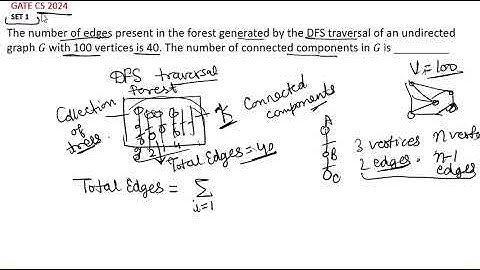 GATE CS 2024
SET 1
The number of edges present in the forest generated by the DFS traversal of an undirected
graph G with 100 vertices is 40. The number of connected components in G is
DFS traversal
forest
V = 100
Collection
of
trees.
K
Connected
components
1 2 3 4
Total Edges = 40
A
B
C
3 vertices
2 edges.
n vertices
n-1
edges
Total Edges = Σ
i=1